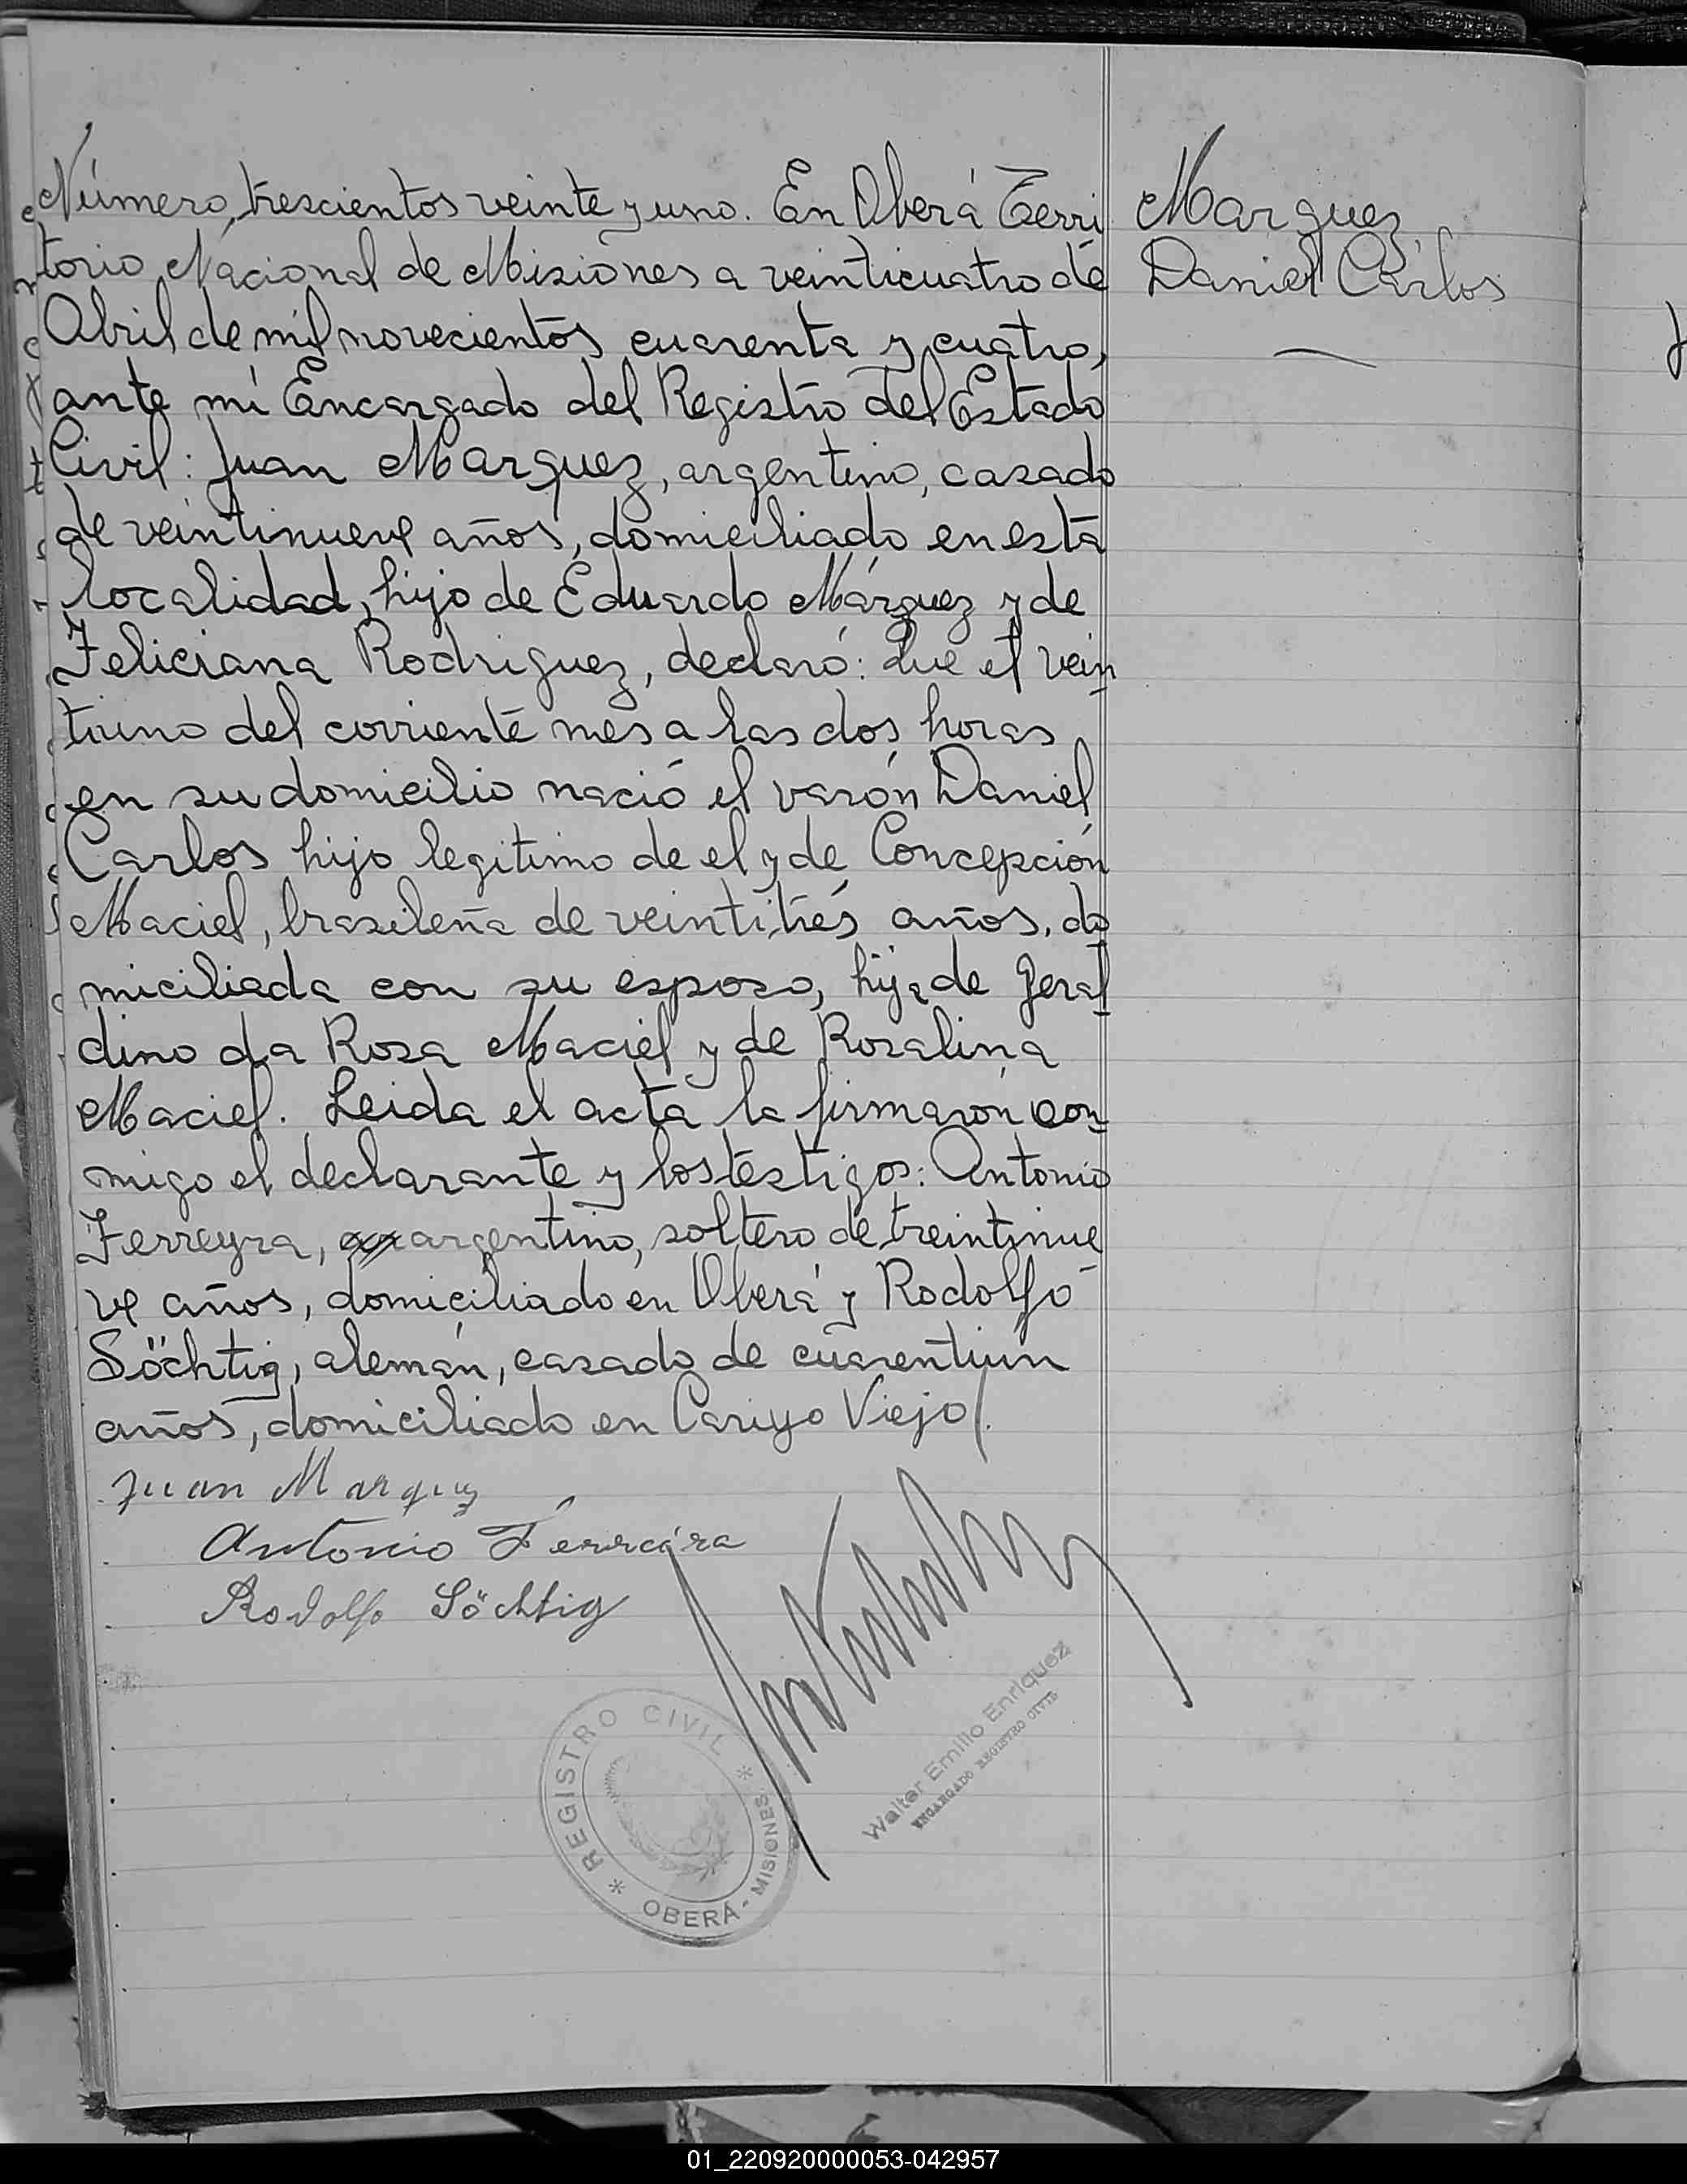 Número, trescientos veinte y uno. En Oberá Terri
torio Nacional de Misiones a veinticuatro de
Abril de mil novecientos cuarenta y cuatro,
ante mi Encargado del Registro del Estado
Civil: Juan Marquez, argentino, casado
de veintinueve años, domiciliado en esta
localidad, hijo de Eduardo Márquez y de
Feliciana Rodriguez, declaró: Que el vein
tiuno del corriente mes a las dos horas
en su domicilio nació el varón Daniel
Carlos hijo legitimo de el y de Concepción
Maciel, brasileña de veintitrés años, do
miciliada con su esposo, hija de Geral
dino da Rosa Maciel y de Rosalina
Maciel. Leida el acta la firmaron con
migo el declarante y los testigos: Antonio
Ferreyra, argentino, soltero de treintinue
ve años, domiciliado en Oberá y Rodolfo
Söchtig, alemán, casado de cuarentiún
años, domiciliado en Cariyo Viejo.
Marquez
Daniel Carlos
Juan Marquez
Antonio Ferreira
Rodolfo Söchtig
REGISTRO CIVIL
OBERÁ - MISIONES
Walter Emilio Enriquez
ENCARGADO REGISTRO CIVIL
01_220920000053-042957